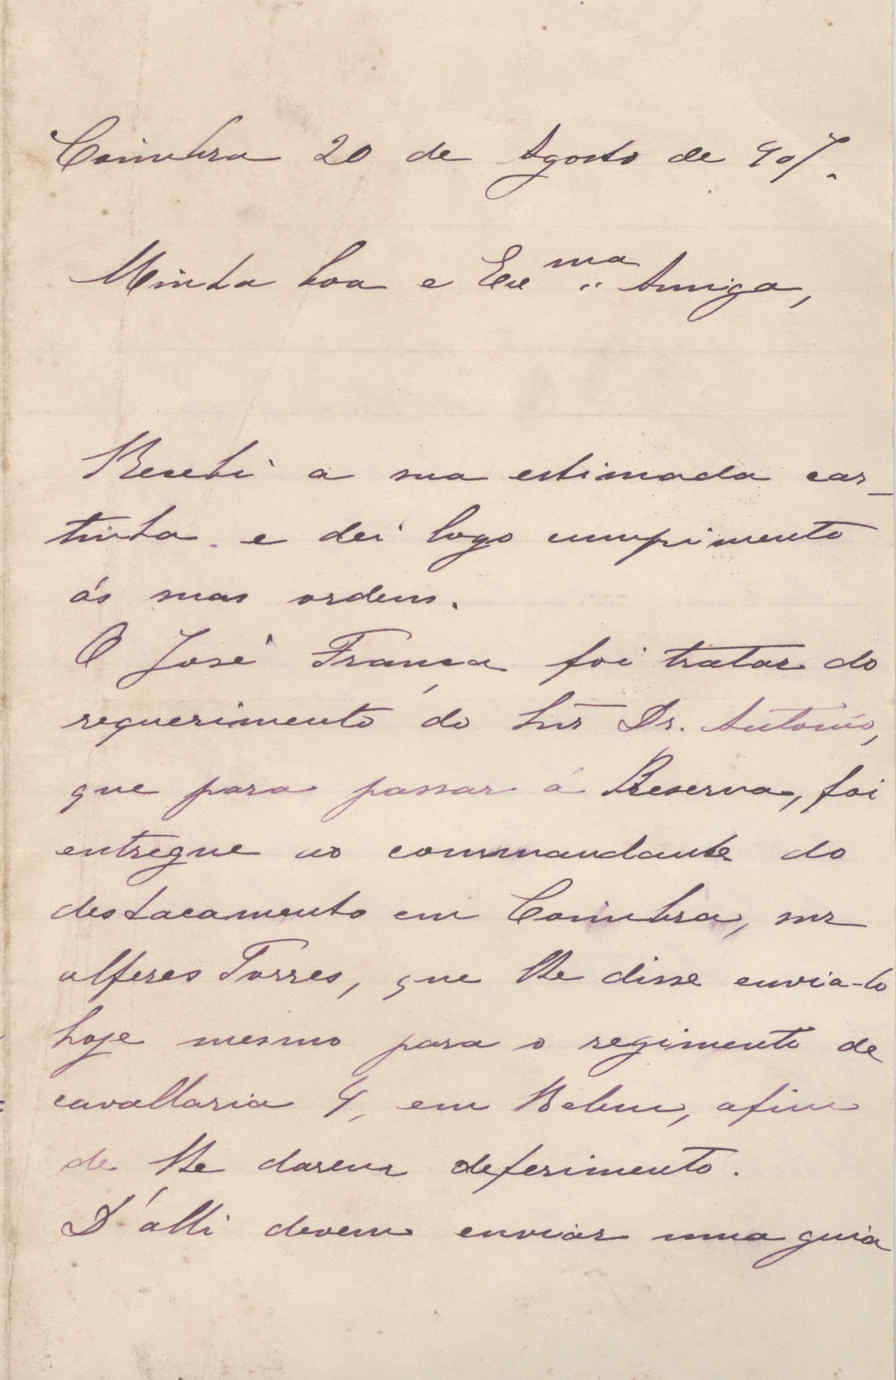 Coimbra 20 de Agosto de 907.
Minha boa e Exma Amiga,
Recebi a sua estimada car-
tinha e dei logo cumprimento
ás suas ordens.
O José França foi tratar do
requerimento do Snr Dr. António,
que para passar á Reserva, foi
entregue ao commandante do
destacamento em Coimbra, snr
alferes Torres, que lhe disse envia-lo
hoje mesmo para o regimento de
cavallaria 4, em Belem, afim
de lhe darem deferimento.
D'álli devem enviar uma guia